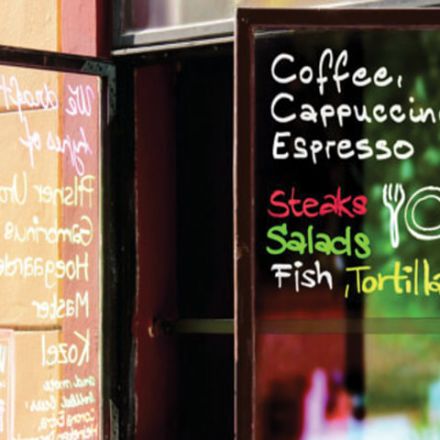 We draft
types of
Pilsner Urq
Gambrinus
Hoegaarde
Master
Kozel
and more
Coffee,
Cappuccin
Espresso
Steaks
Salads
Fish, Tortilla